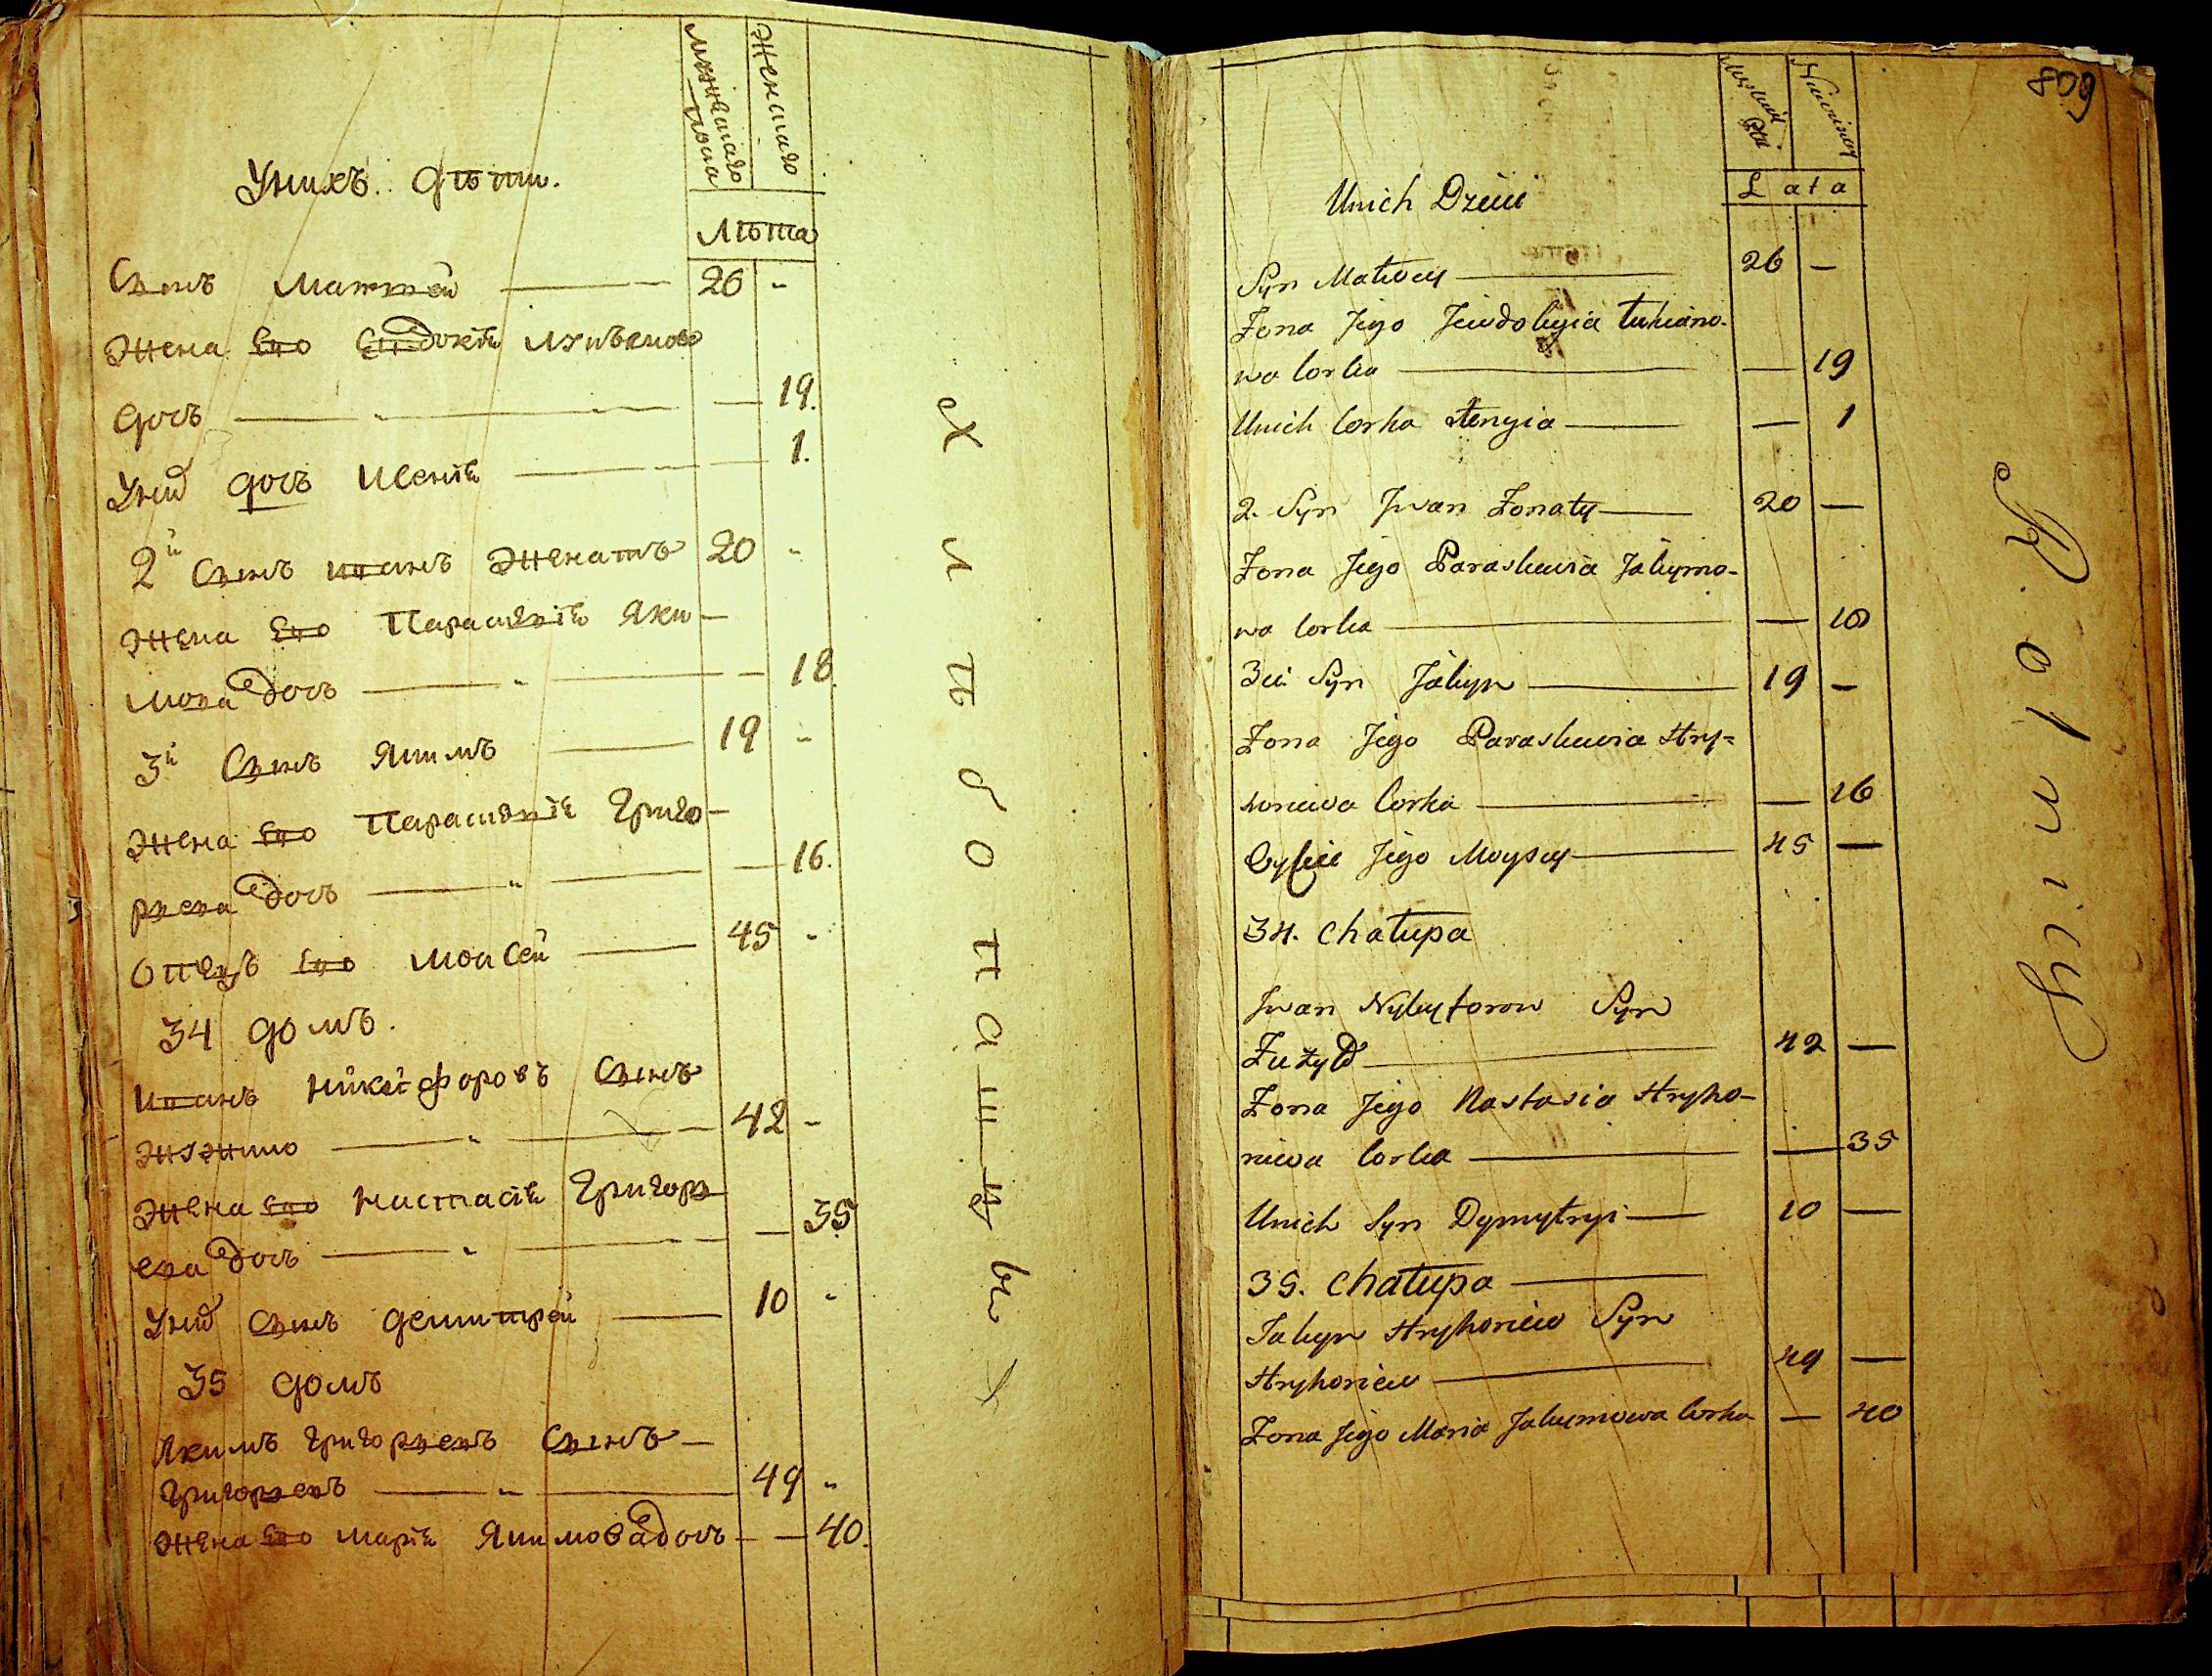 Мужескаго пола
Женскаго
Унихъ. дѣти.
Лѣта
Сынъ Матвей 26 -
Жена Его Евдокия Лукьянова
дочь — 19.
Унид дочь Ксения — 1.
2й Сынъ иванъ Женатъ 20 -
Жена Его Параскевия Яки-
мова дочь — 18
3й Сынъ Якимъ 19 -
Жена Его Параскевия Григо-
рьева дочь — 16.
Отецъ Его Моисей 45 -
34 домъ.
Иванъ Никифоровъ Сынъ
42 -
Жена Его Настасия Григорь
ева дочь — 35
Унид Сынъ Демитрей 10 -
35 домъ
Якимъ Григорьевъ Сынъ -
Григорьевъ 49 -
Жена Его Мария Якимова дочь — 40.
Хлѣбопашцовъ
809
Lata
Unich Dzieci
Syn Matwey 26 —
Żona Jego Jewdokyia Łukiano-
wa Corka — 19
Unich Corka — 1
2. Syn Jwan Żonaty 20 —
Żona Jego Paraskewia Jakymo-
wa Corka — 18
3ci Syn Jakym 19 —
Żona Jego Paraskewia Hry=
horiewa Corka — 16
Oyciec Jego Moysey 45 —
34. Chałupa
Jwan Nykyforow Syn
42 —
Żona Jego Nastasia Hryho-
riewa Corka — 35
Unich Syn Dymytryi 10 —
35. Chałupa —
Jakym Hryhoriew Syn
Hryhoriew 49 —
Żona Jego Maria Jakymowa Corka — 40
Rolnicy